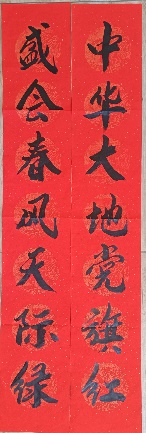 中华大地党旗红
盛会春风天际绿